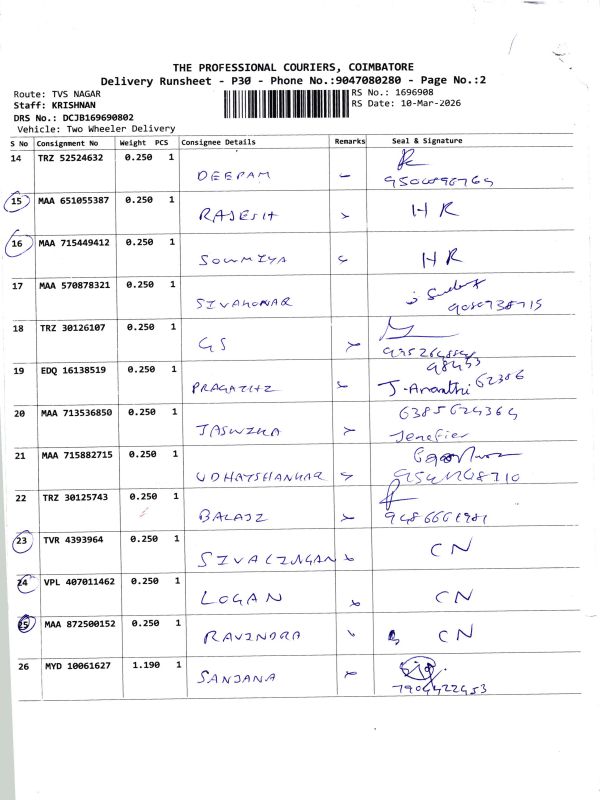 THE PROFESSIONAL COURIERS, COIMBATORE
Delivery Runsheet - P30 - Phone No.:9047080280 - Page No.:2
Route: TVS NAGAR RS No.: 1696908
Staff: KRISHNAN RS Date: 10-Mar-2026
DRS No.: DCJB169690802
Vehicle: Two Wheeler Delivery
S No Consignment No Weight PCS Consignee Details Remarks Seal & Signature
14 TRZ 52524632 0.250 1
DEEPAM
15 MAA 651055387 0.250 1
RAJESH HR
16 MAA 715449412 0.250 1
SOWMIYA HR
17 MAA 570878321 0.250 1
SIVAKUMAR
18 TRZ 30126107 0.250 1
GS
19 EDQ 16138519 0.250 1
J-Ananthi 62386
20 MAA 713536850 0.250 1
6385624364
JASWIKA Jenefier
21 MAA 715882715 0.250 1
UDHAYSHANKAR
22 TRZ 30125743 0.250 1
BALAJI 9486661981
23 TVR 4393964 0.250 1
SIVALINGAN CN
24 VPL 407011462 0.250 1
LOGAN CN
25 MAA 872500152 0.250 1
RAVINDRA CN
26 MYD 10061627 1.190 1
SANJANA
7904422453